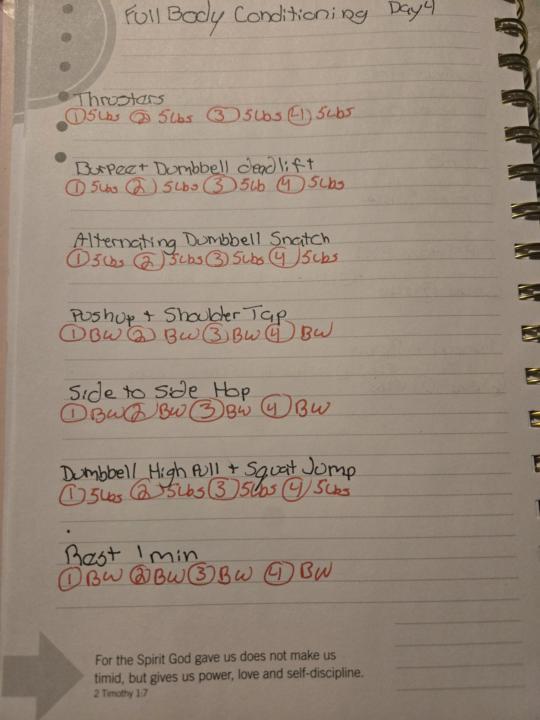 Full Body Conditioning Day 4
Thrusters
① 5Lbs ② 5Lbs ③ 5Lbs ④ 5Lbs
Burpee + Dumbbell deadlift
① 5Lbs ② 5Lbs ③ 5Lb ④ 5Lbs
Alternating Dumbbell Snatch
① 5Lbs ② 5Lbs ③ 5Lbs ④ 5Lbs
Pushup + Shoulder Tap
① BW ② BW ③ BW ④ BW
Side to Side Hop
① BW ② BW ③ BW ④ BW
Dumbbell High Pull + Squat Jump
① 5Lbs ② 5Lbs ③ 5Lbs ④ 5Lbs
Rest 1 min
① BW ② BW ③ BW ④ BW
For the Spirit God gave us does not make us
timid, but gives us power, love and self-discipline.
2 Timothy 1:7